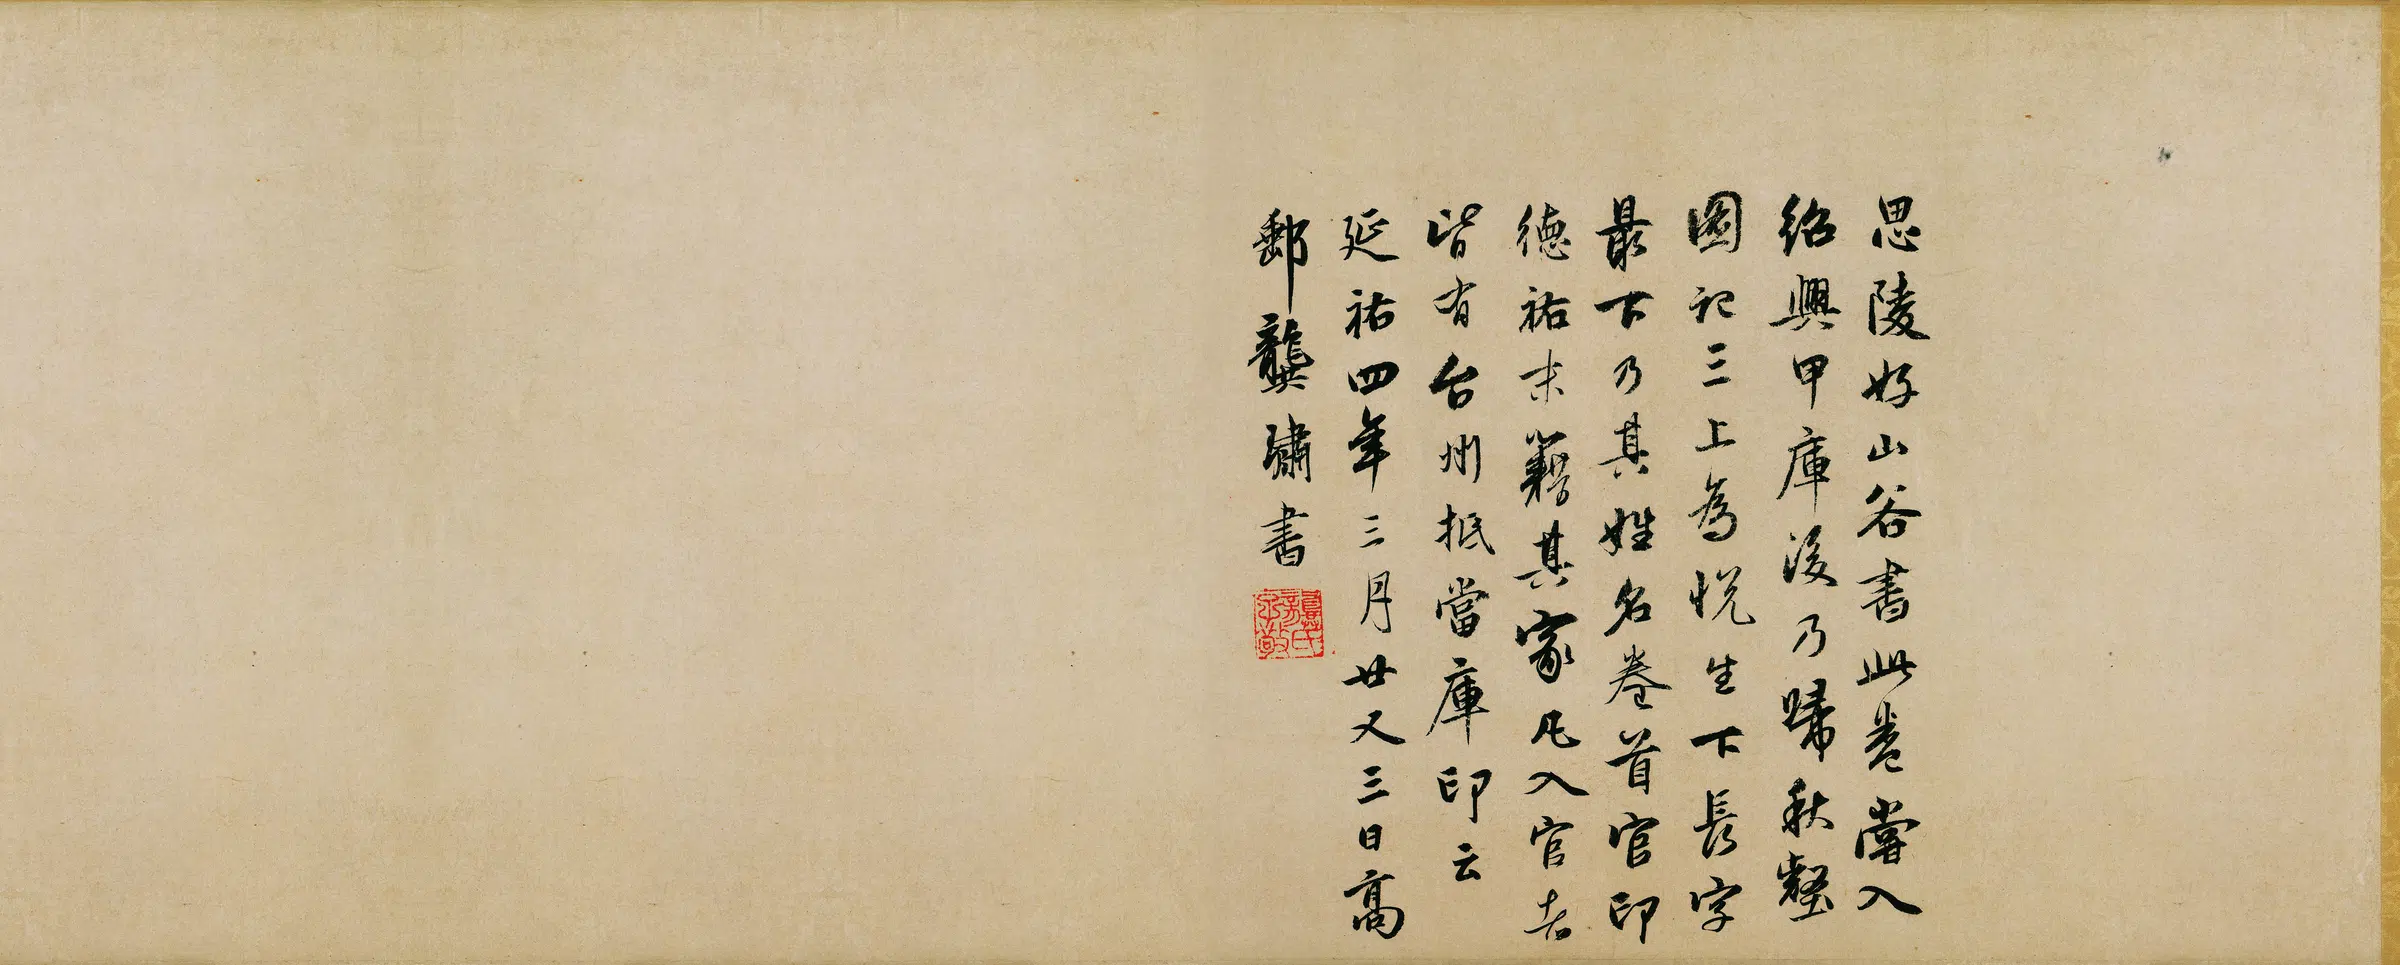 思陵好山谷書此卷嘗入
紹興甲庫後乃歸秋壑
圖記三上為悅生下長字
最下乃其姓名卷首官印
德祐末籍其家凡入官者
皆有台州抵當庫印云
延祐四年三月廿又三日高
郵龔璛書
龔氏子敬